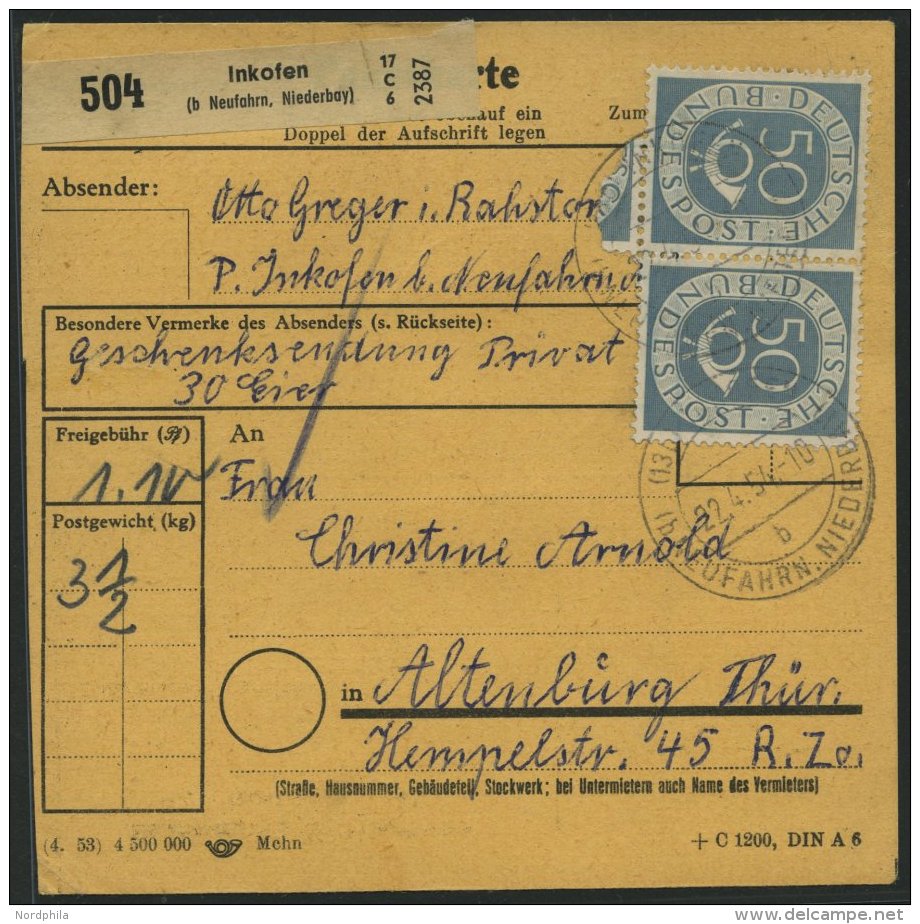 504
Inkofen
(b Neufahrn, Niederbay)
17
C
6
2387
rte
auf ein
Zum
Doppel der Aufschrift legen
DEUTSCHE
BUNDESPOST
50
DEUTSCHE
BUNDESPOST
50
Absender:
Otto Greger i. Rahstor
P. Inkofen b. Neufahrn
Besondere Vermerke des Absenders (s. Rückseite):
Geschenksendung Privat
30 Eier
Freigebühr (Pf)
1.10
An
Frau
Postgewicht (kg)
3 1/2
Christine Arnold
22.4.54.-10
b
NEUFAHRN. NIEDERB
in Altenburg Thür.
Hempelstr. 45 R. Zo.
(Straße, Hausnummer, Gebäudeteil, Stockwerk; bei Untermietern auch Name des Vermieters)
(4. 53) 4 500 000 Mchn
+ C 1200, DIN A 6
Nordphila
www.delcampe.net